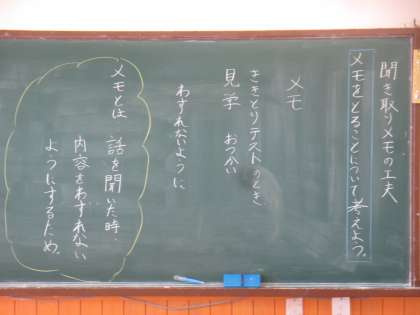 聞き取りメモの工夫
メモをとることについて考えよう。
メモ
ききとりテストのとき
見学 おつかい
わすれないように
メモとは 話を聞いた時、
内容をわすれない
ようにするため。